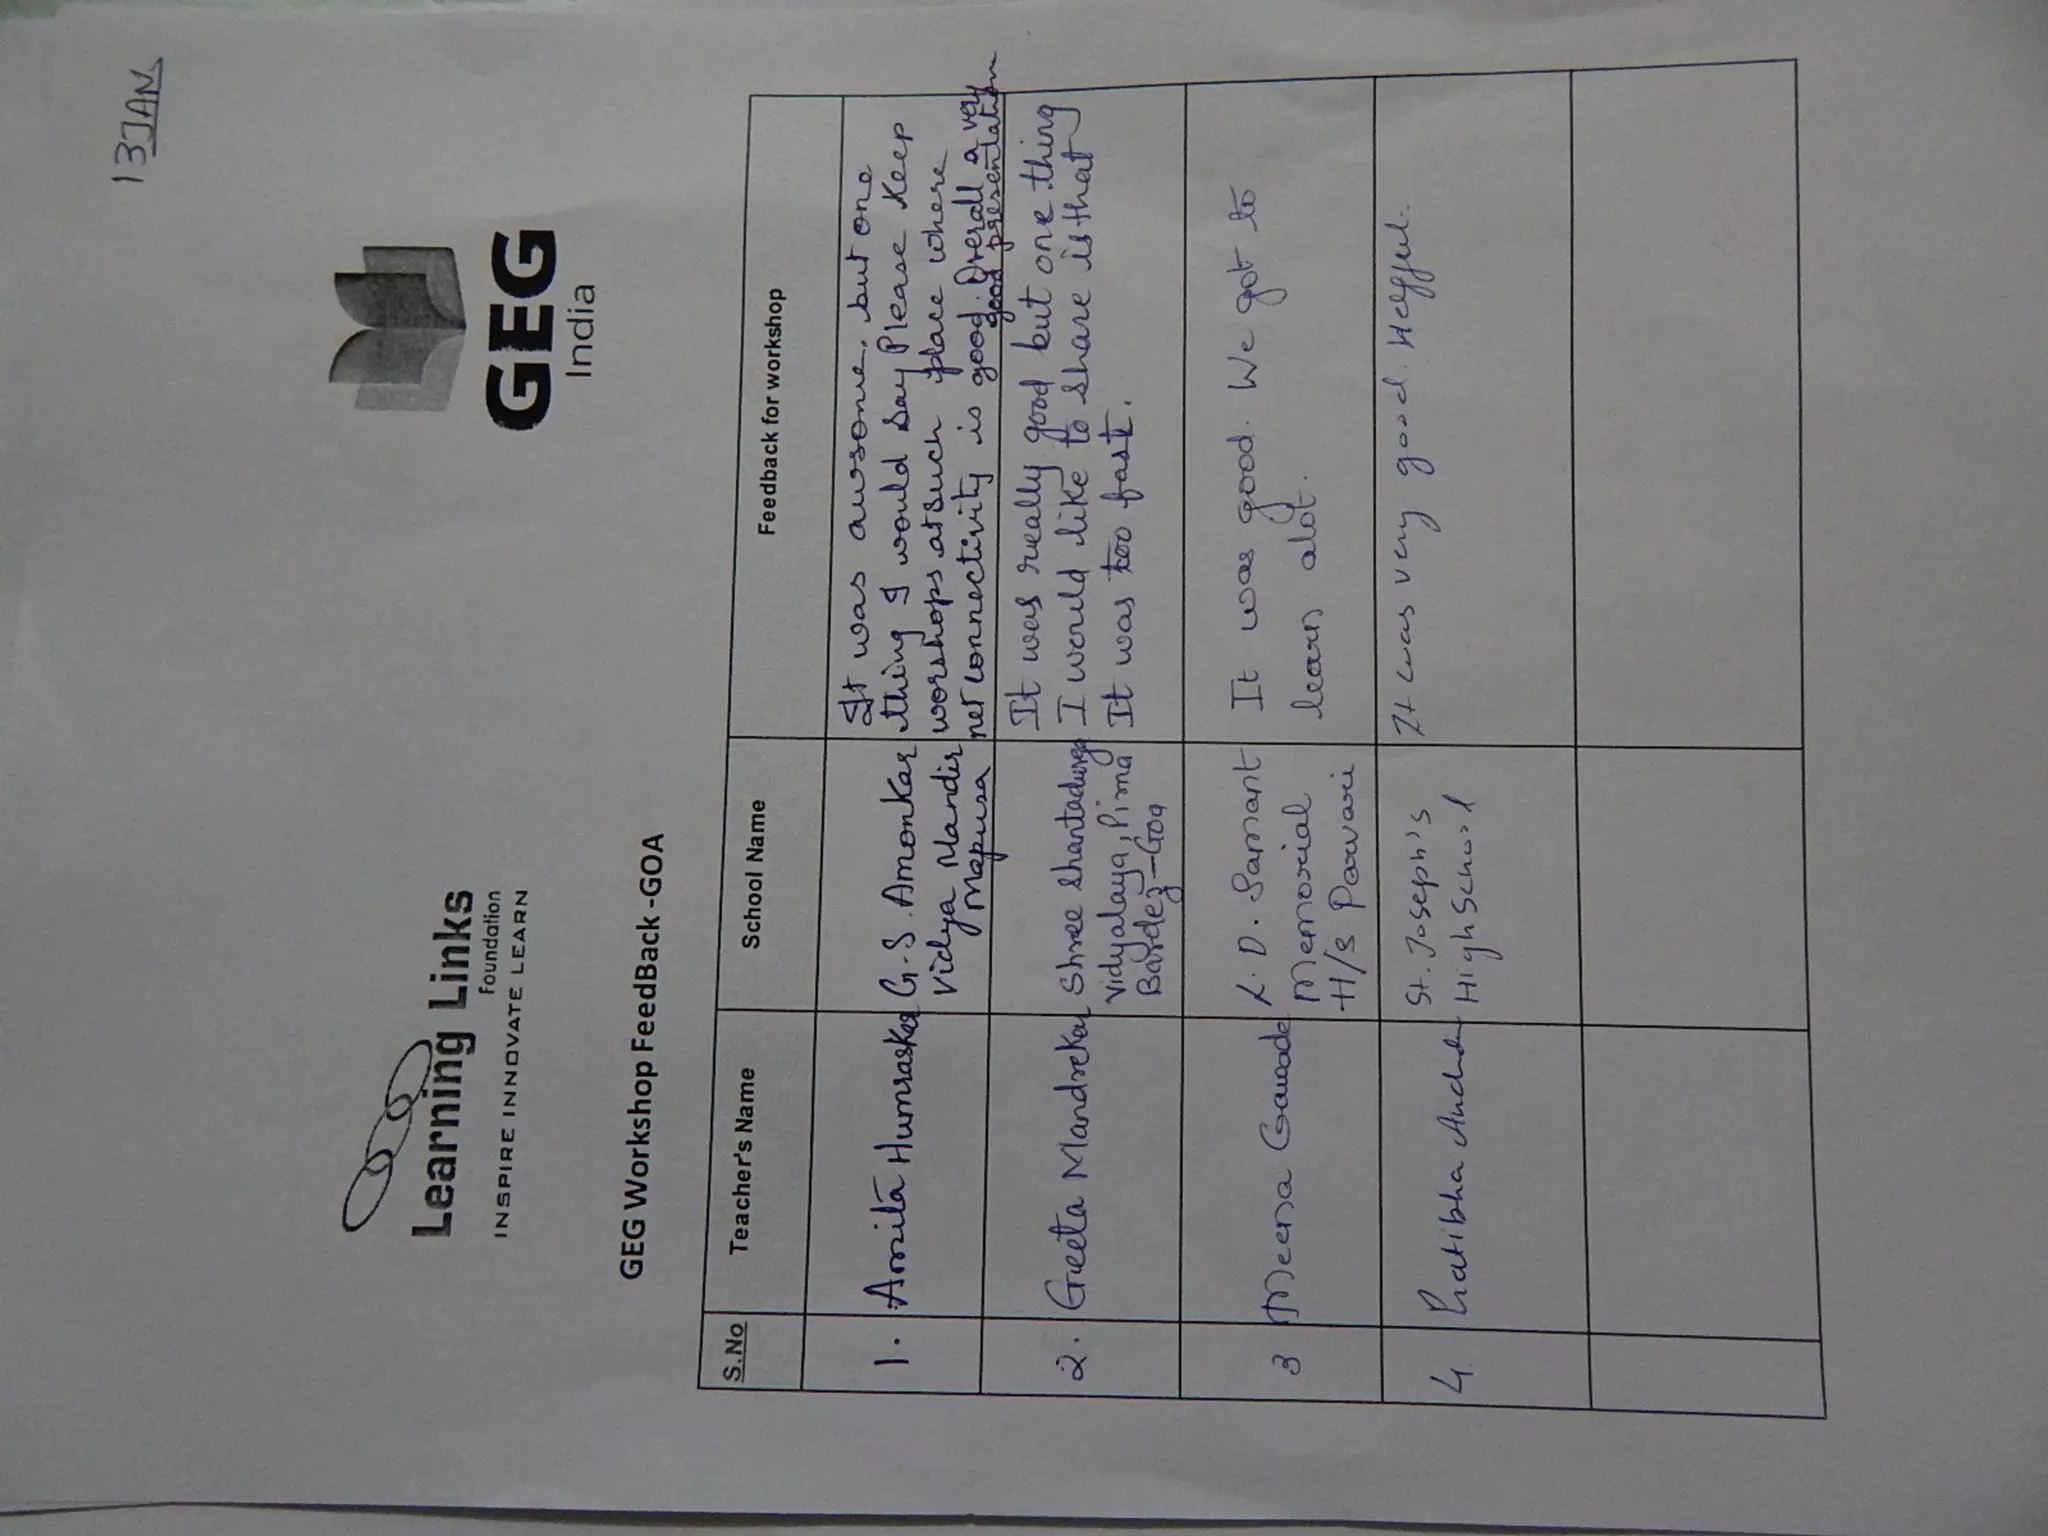 13 JAN
Learning Links
Foundation
INSPIRE INNOVATE LEARN
GEG
India
GEG Workshop FeedBack -GOA
S.No
Teacher's Name
School Name
Feedback for workshop
1.
Amita Humraskar
G.S. Amonkar
Vidya Mandir
Mapusa
It was awsome, but one
thing I would say Please keep
workshops at such place where
net connectivity is good. Overall a very
good presentation
2.
Geeta Mandrekar
Shree Shantadurga
Vidyalaya, Pirna
Bardez-Goa
It was really good but one thing
I would like to share is that
It was too fast.
3
Meena Gawade
L.D. Samant
Memorial
H/S Porvari
It was good. We got to
learn alot.
4.
Pratibha
St. Joseph's
High School
It was very good. Helpful.